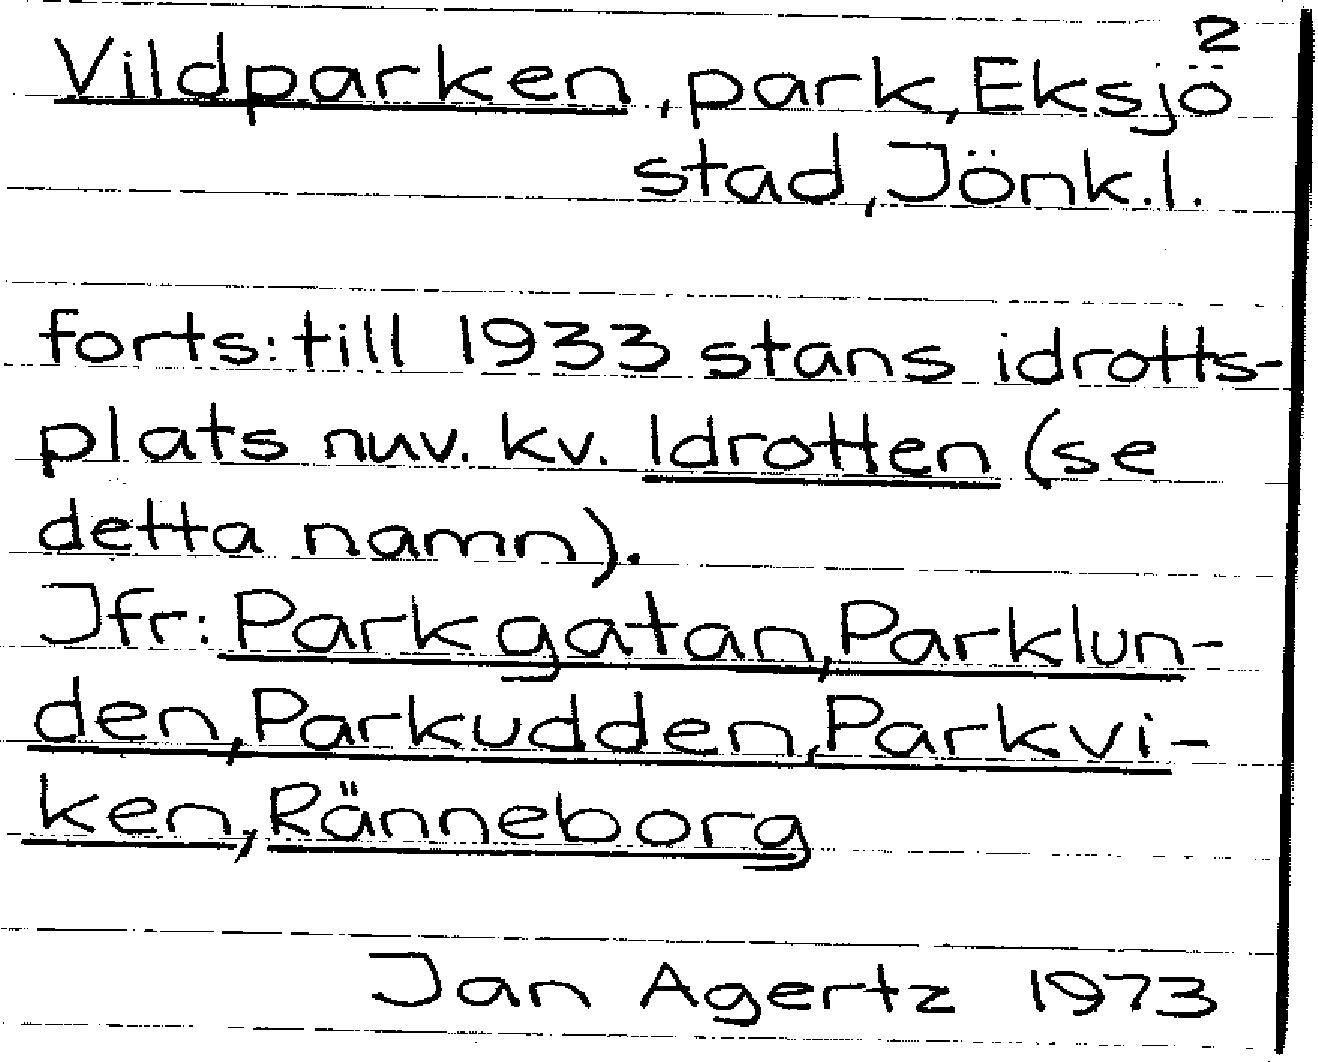 2
Vildparken, park, Eksjö
stad, Jönk.l.
forts: till 1933 stans idrotts-
plats nuv. kv. Idrotten (se
detta namn).
Jfr: Parkgatan, Parklun-
den, Parkudden, Parkvi-
ken, Ränneborg
Jan Agertz 1973